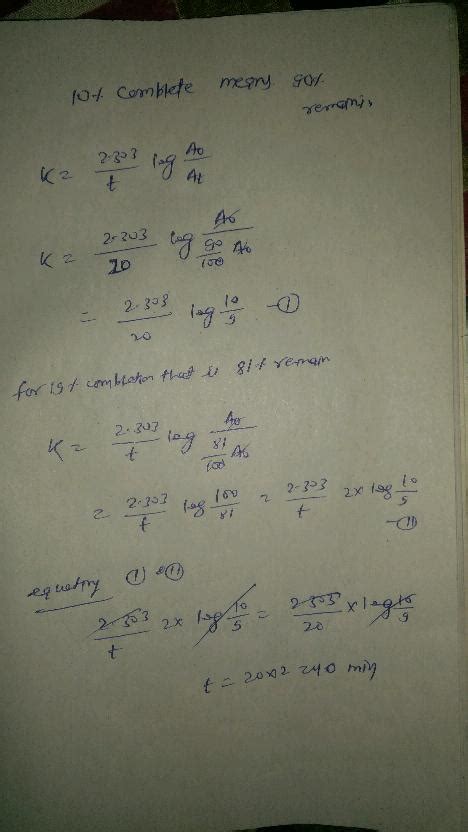 10% Complete means 90%
remains
K = 2.303/t log A0/At
K = 2.303/20 log A0/(90/100 A0)
= 2.303/20 log 10/9 - ①
for 19% combletion that is 81% remain
K = 2.303/t log A0/(81/100 A0)
= 2.303/t log 100/81 = 2.303/t 2x log 10/9
- ②
equating ① & ②
2.303/t 2x log 10/9 = 2.303/20 x log 10/9
t = 20x2 = 40 min